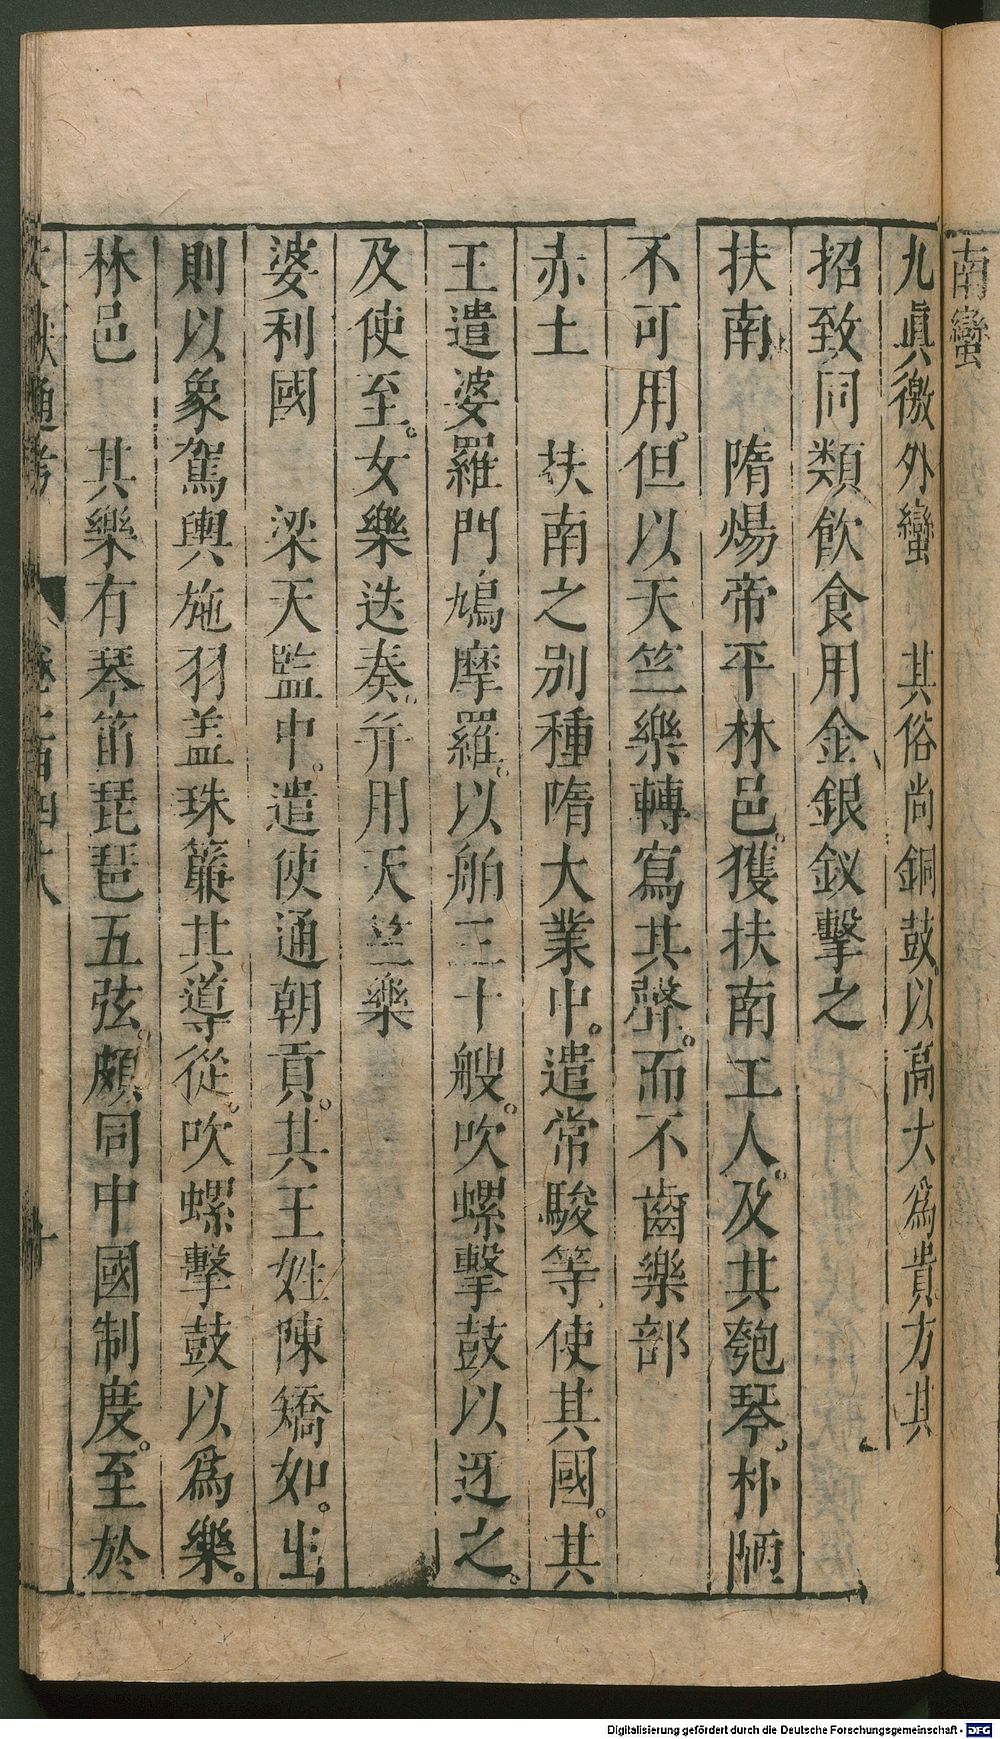 南蠻
九眞徼外蠻　其俗尚銅鼓以高大爲貴方其
招致同類飲食用金銀釵擊之
扶南　隋煬帝平林邑。獲扶南工人。及其匏琴。朴陋
不可用。但以天竺樂轉寫其聲。而不齒樂部
赤土　扶南之别種隋大業中。遣常駿等使其國。其
王遣婆羅門鳩摩羅。以舶三十艘。吹螺擊鼓以迓之。
及使至。女樂迭奏。并用天竺樂
婆利國　梁天監中。遣使通朝貢。其王姓陳矯如。出
則以象駕輿施羽盖珠簾其導從。吹螺擊鼓以爲樂。
林邑　其樂有琴笛琵琶五弦。頗同中國制度。至於
通考　卷一百四十八　十
Digitalisierung gefördert durch die Deutsche Forschungsgemeinschaft - DFG